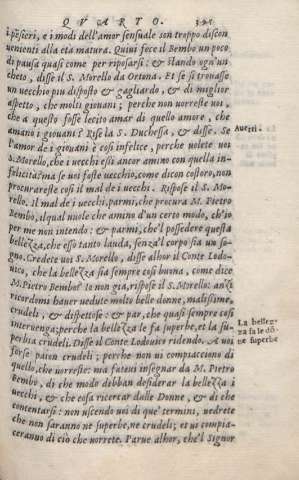 QVARTO. 391
i pẽsieri, e i modi dell'amor sensuale son troppo discon
uenienti alla età matura. Quiui fece il Bembo un poco
di pausa quasi come per riposarsi: & stando ogn'un
cheto, disse il S. Morello da Ortona. Et se si trouasse
un uecchio piu disposto & gagliardo, & di miglior
aspetto, che molti giouani; perche non uorreste uoi,
che a questo fosse lecito amar di quello amore, che
amano i giouani? Rise la S. Duchessa, & disse. Se
l'amor de i giouani è cosi infelice, perche uolete uoi
S. Morello, che i uecchi essi ancor amino con quella in-
felicità? ma se uoi foste uecchio, come dicon costoro, non
procurareste cosi il mal de i uecchi. Rispose il S. Mo-
rello. Il mal de i uecchi, parmi, che procura M. Pietro
Bembo, il qual uuole che amino d'un certo modo, ch'io
per me non intendo: & parmi, che'l possedere questa
bellezza, che esso tanto lauda, senza'l corpo sia un so-
gno. Credete uoi S. Morello, disse alhor il Conte Lodo-
uico, che la bellezza sia sempre cosi buona, come dice
M. Pietro Bembo? Io non gia, rispose il S. Morello: anzi
ricordomi hauer uedute molto belle donne, malissime,
crudeli, & dispettose: & par, che quasi sempre cosi
interuenga; perche la bellezza le fa superbe, et la su-
perbia crudeli. Disse il Conte Lodouico ridendo. A uoi
forse paion crudeli; perche non ui compiacciono di
quello, che uorreste: ma fateui insegnar da M. Pietro
Bembo, di che modo debban desiderar la bellezza i
uecchi, & che cosa ricercar dalle Donne, & di che
contentarsi: non uscendo uoi di que' termini, uedrete
che non saranno ne superbe, ne crudeli; et ui compia-
ceranno di ciò che uorrete. Parue alhor, che'l Signor
Auerti.
La bellez-
za fa le dõ-
ne superbe